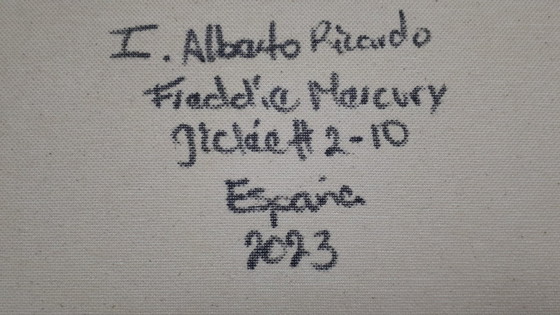 I. Alberto Ricardo
Freddie Mercury
Giclée # 2-10
España
2023